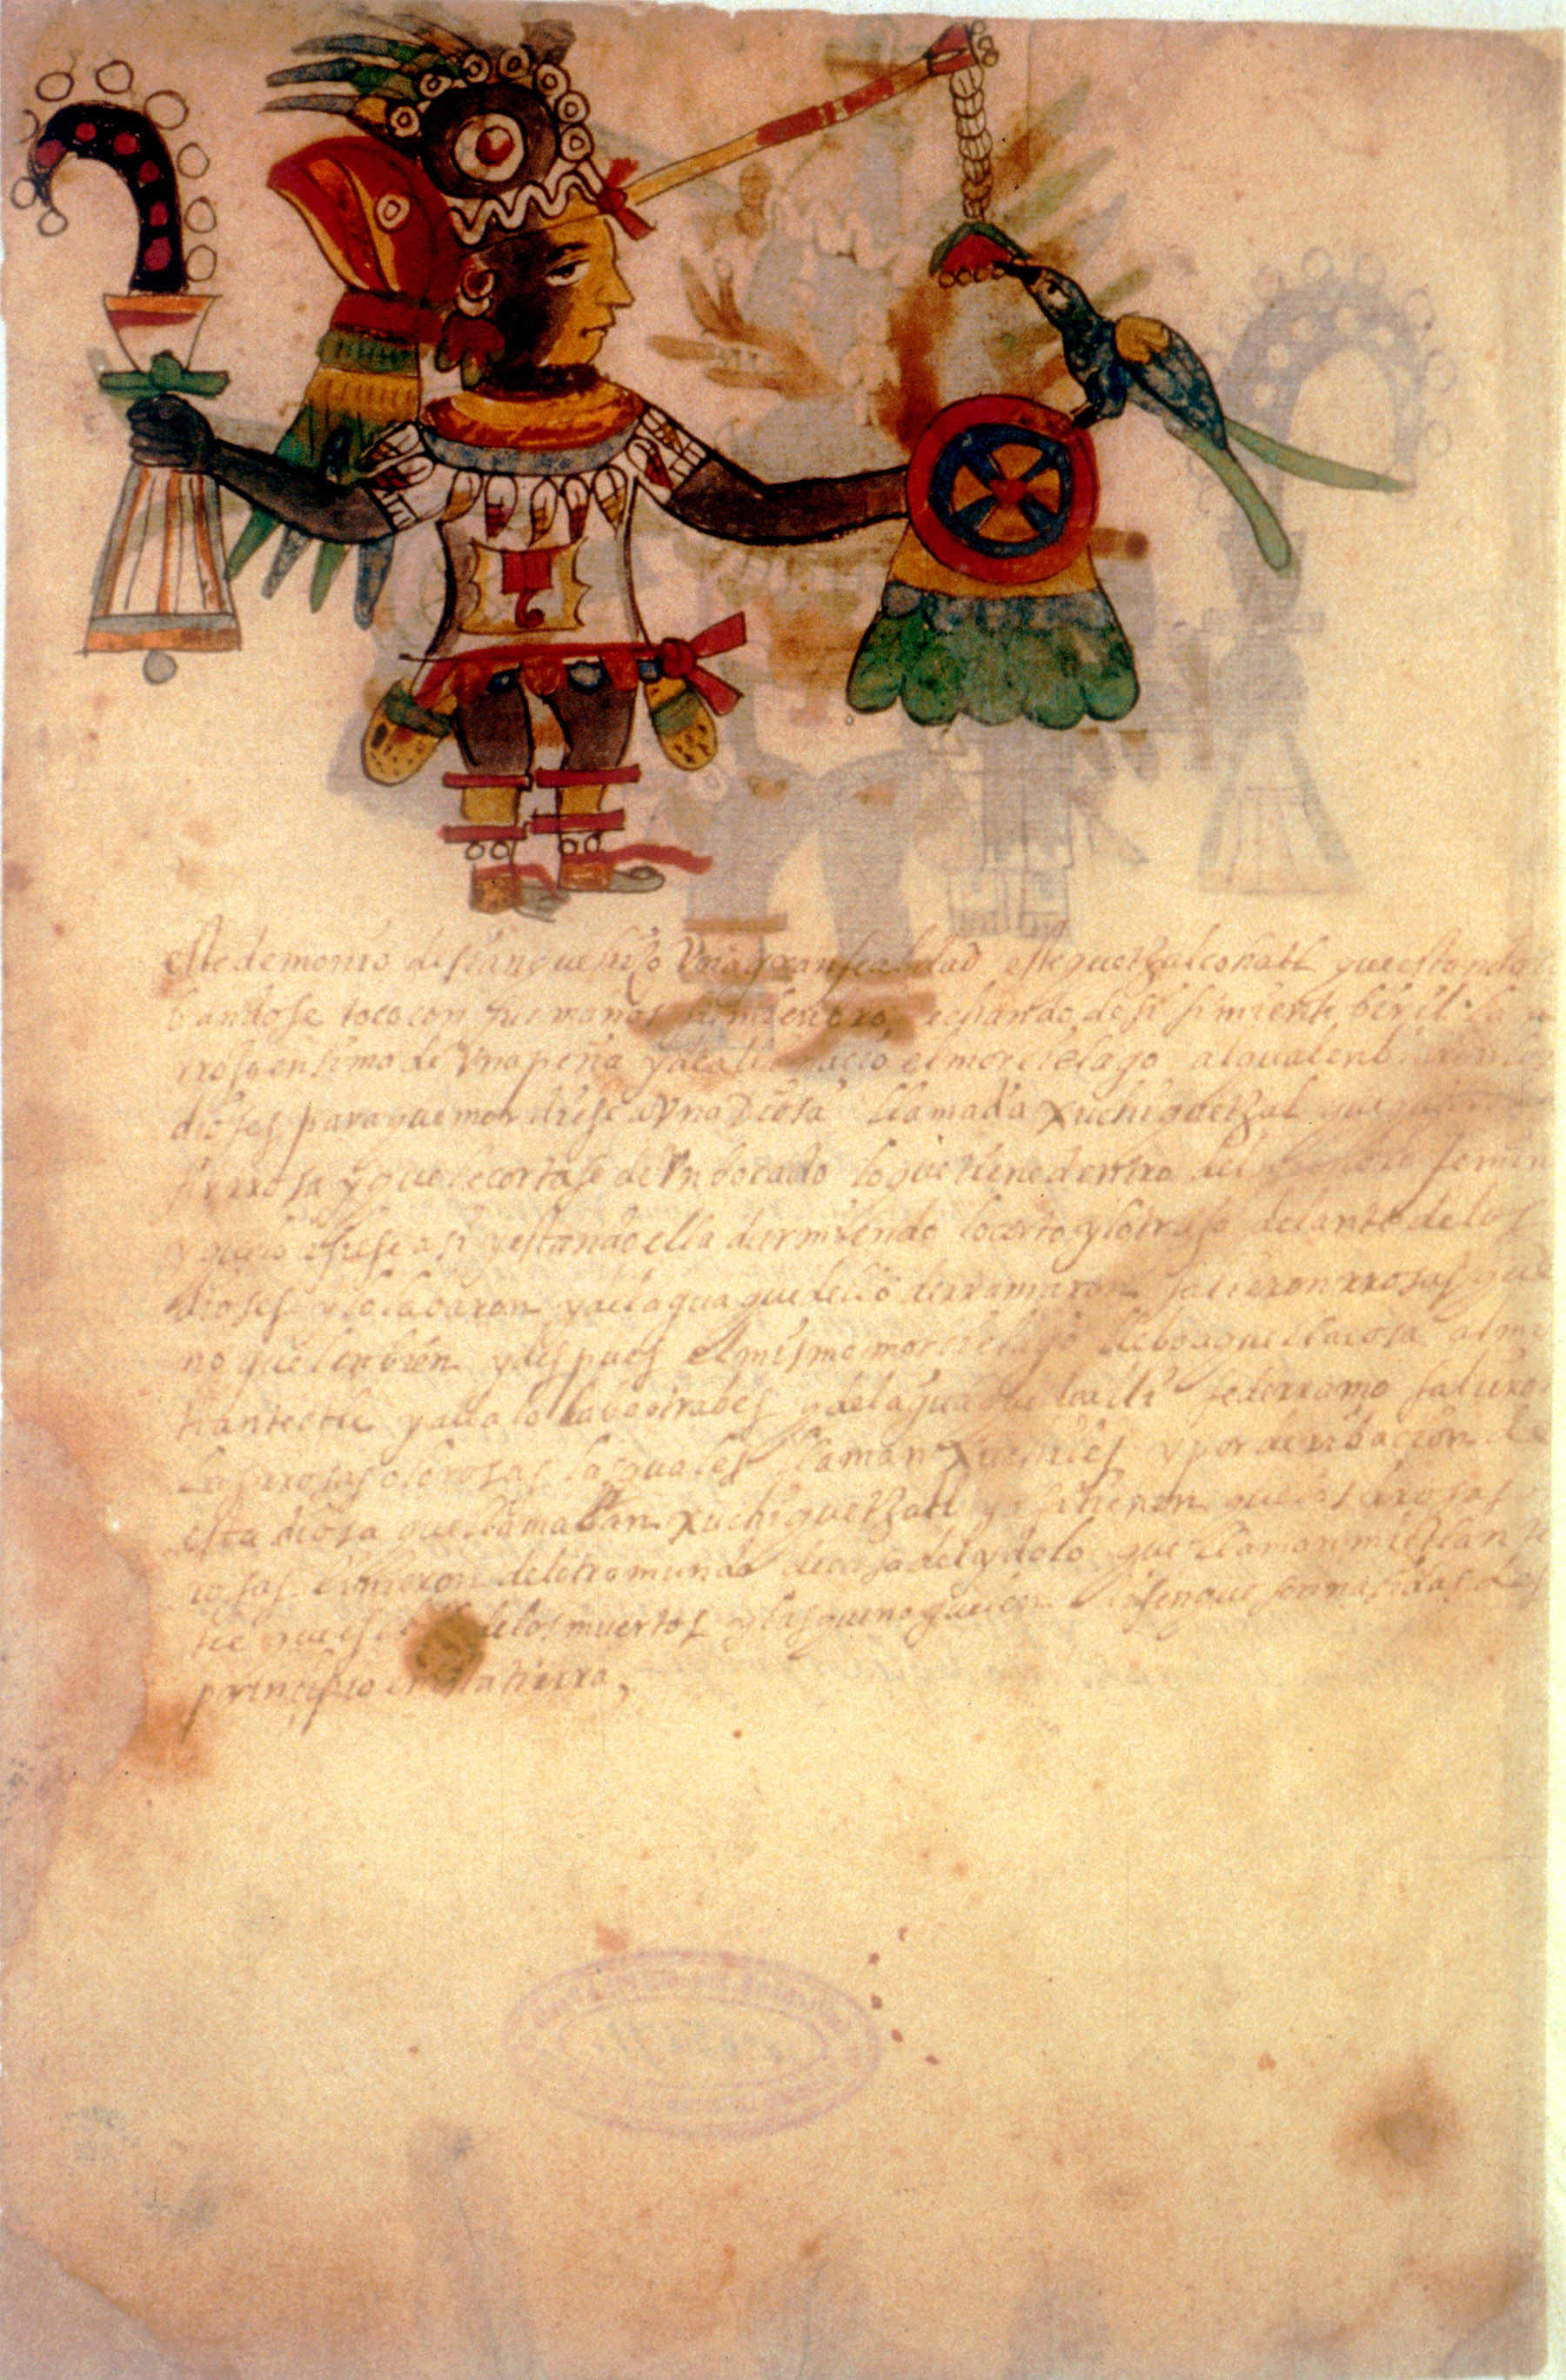 este demonio desian que hizo Vna gran fealdad este quetzalcohatl que estando la
bandose toco con sus manos su mienbro echando de si simiente biril la a
rrojo ensima de Vna peña y de alli nacio el morcielago al qual enbiaron los
dioses para que mordiese a Vna diosa llamada xuchiquetzal que
rosa y que le cortase de Vn bocado lo que tiene dentro del mienbro femin
y estando ella durmiendo lo corto y lo trajo delante de los
dioses y lo labaron y del agua que dello derramaron salieron rrosas que
no guelen bien y despues el mismo morcielago llebo aquella rosa al mi
tlantectli y alla lo labo otra bes y del agua que de alli se derramo salieron
las rrosas olorosas las quales llaman xuchiles y por deribacion de
esta diosa que llamaban xuchiquetzatl
rosas binieron del otro mundo de casa del ydolo que llaman mictlan te
de los muertos y las que no guelen disen que son nasidas des
prinsipio en la tierra,